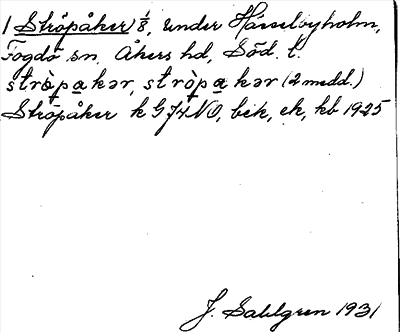 1 Ströpåker 1/8, under Hässelbyholm,
Fogdö sn, Åkers hd, Söd. l.
strö̀pakər, strö̀pakər (2 medd.)
Ströpåker k G 74 NO, bek, ek, kb 1925
J. Sahlgren 1931